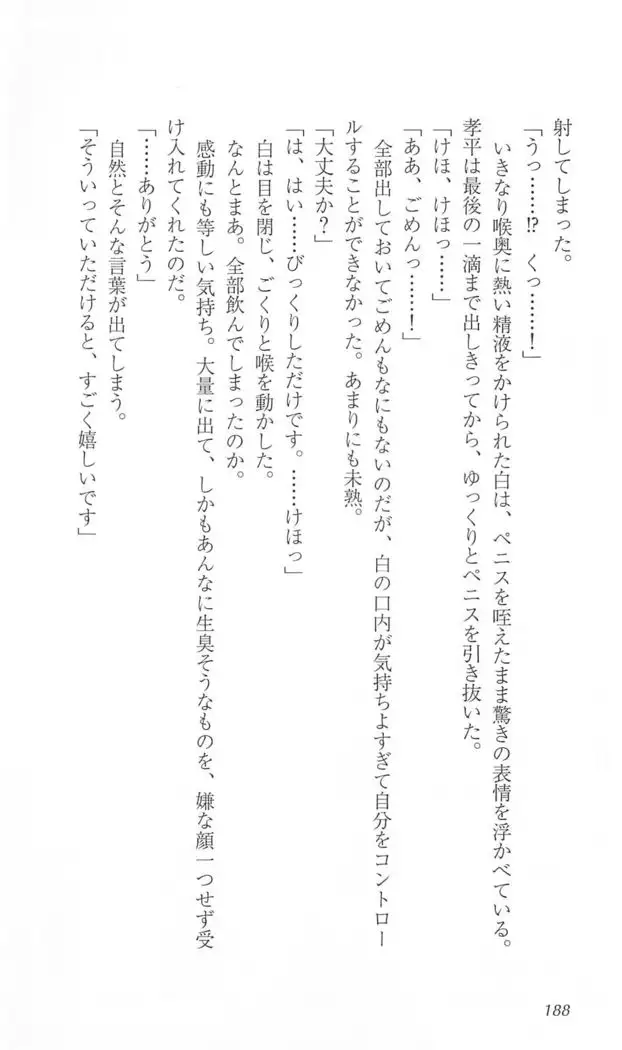 射してしまった。
「うっ……!? くっ……！」
いきなり喉奥に熱い精液をかけられた白は、ペニスを咥えたまま驚きの表情を浮かべている。
孝平は最後の一滴まで出しきってから、ゆっくりとペニスを引き抜いた。
「けほ、けほっ……」
「ああ、ごめんっ……！」
全部出しておいてごめんもなにもないのだが、白の口内が気持ちよすぎて自分をコントロー
ルすることができなかった。あまりにも未熟。
「大丈夫か？」
「は、はい……びっくりしただけです。……けほっ」
白は目を閉じ、ごくりと喉を動かした。
なんとまあ。全部飲んでしまったのか。
感動にも等しい気持ち。大量に出て、しかもあんなに生臭そうなものを、嫌な顔一つせず受
け入れてくれたのだ。
「……ありがとう」
自然とそんな言葉が出てしまう。
「そういっていただけると、すごく嬉しいです」
188